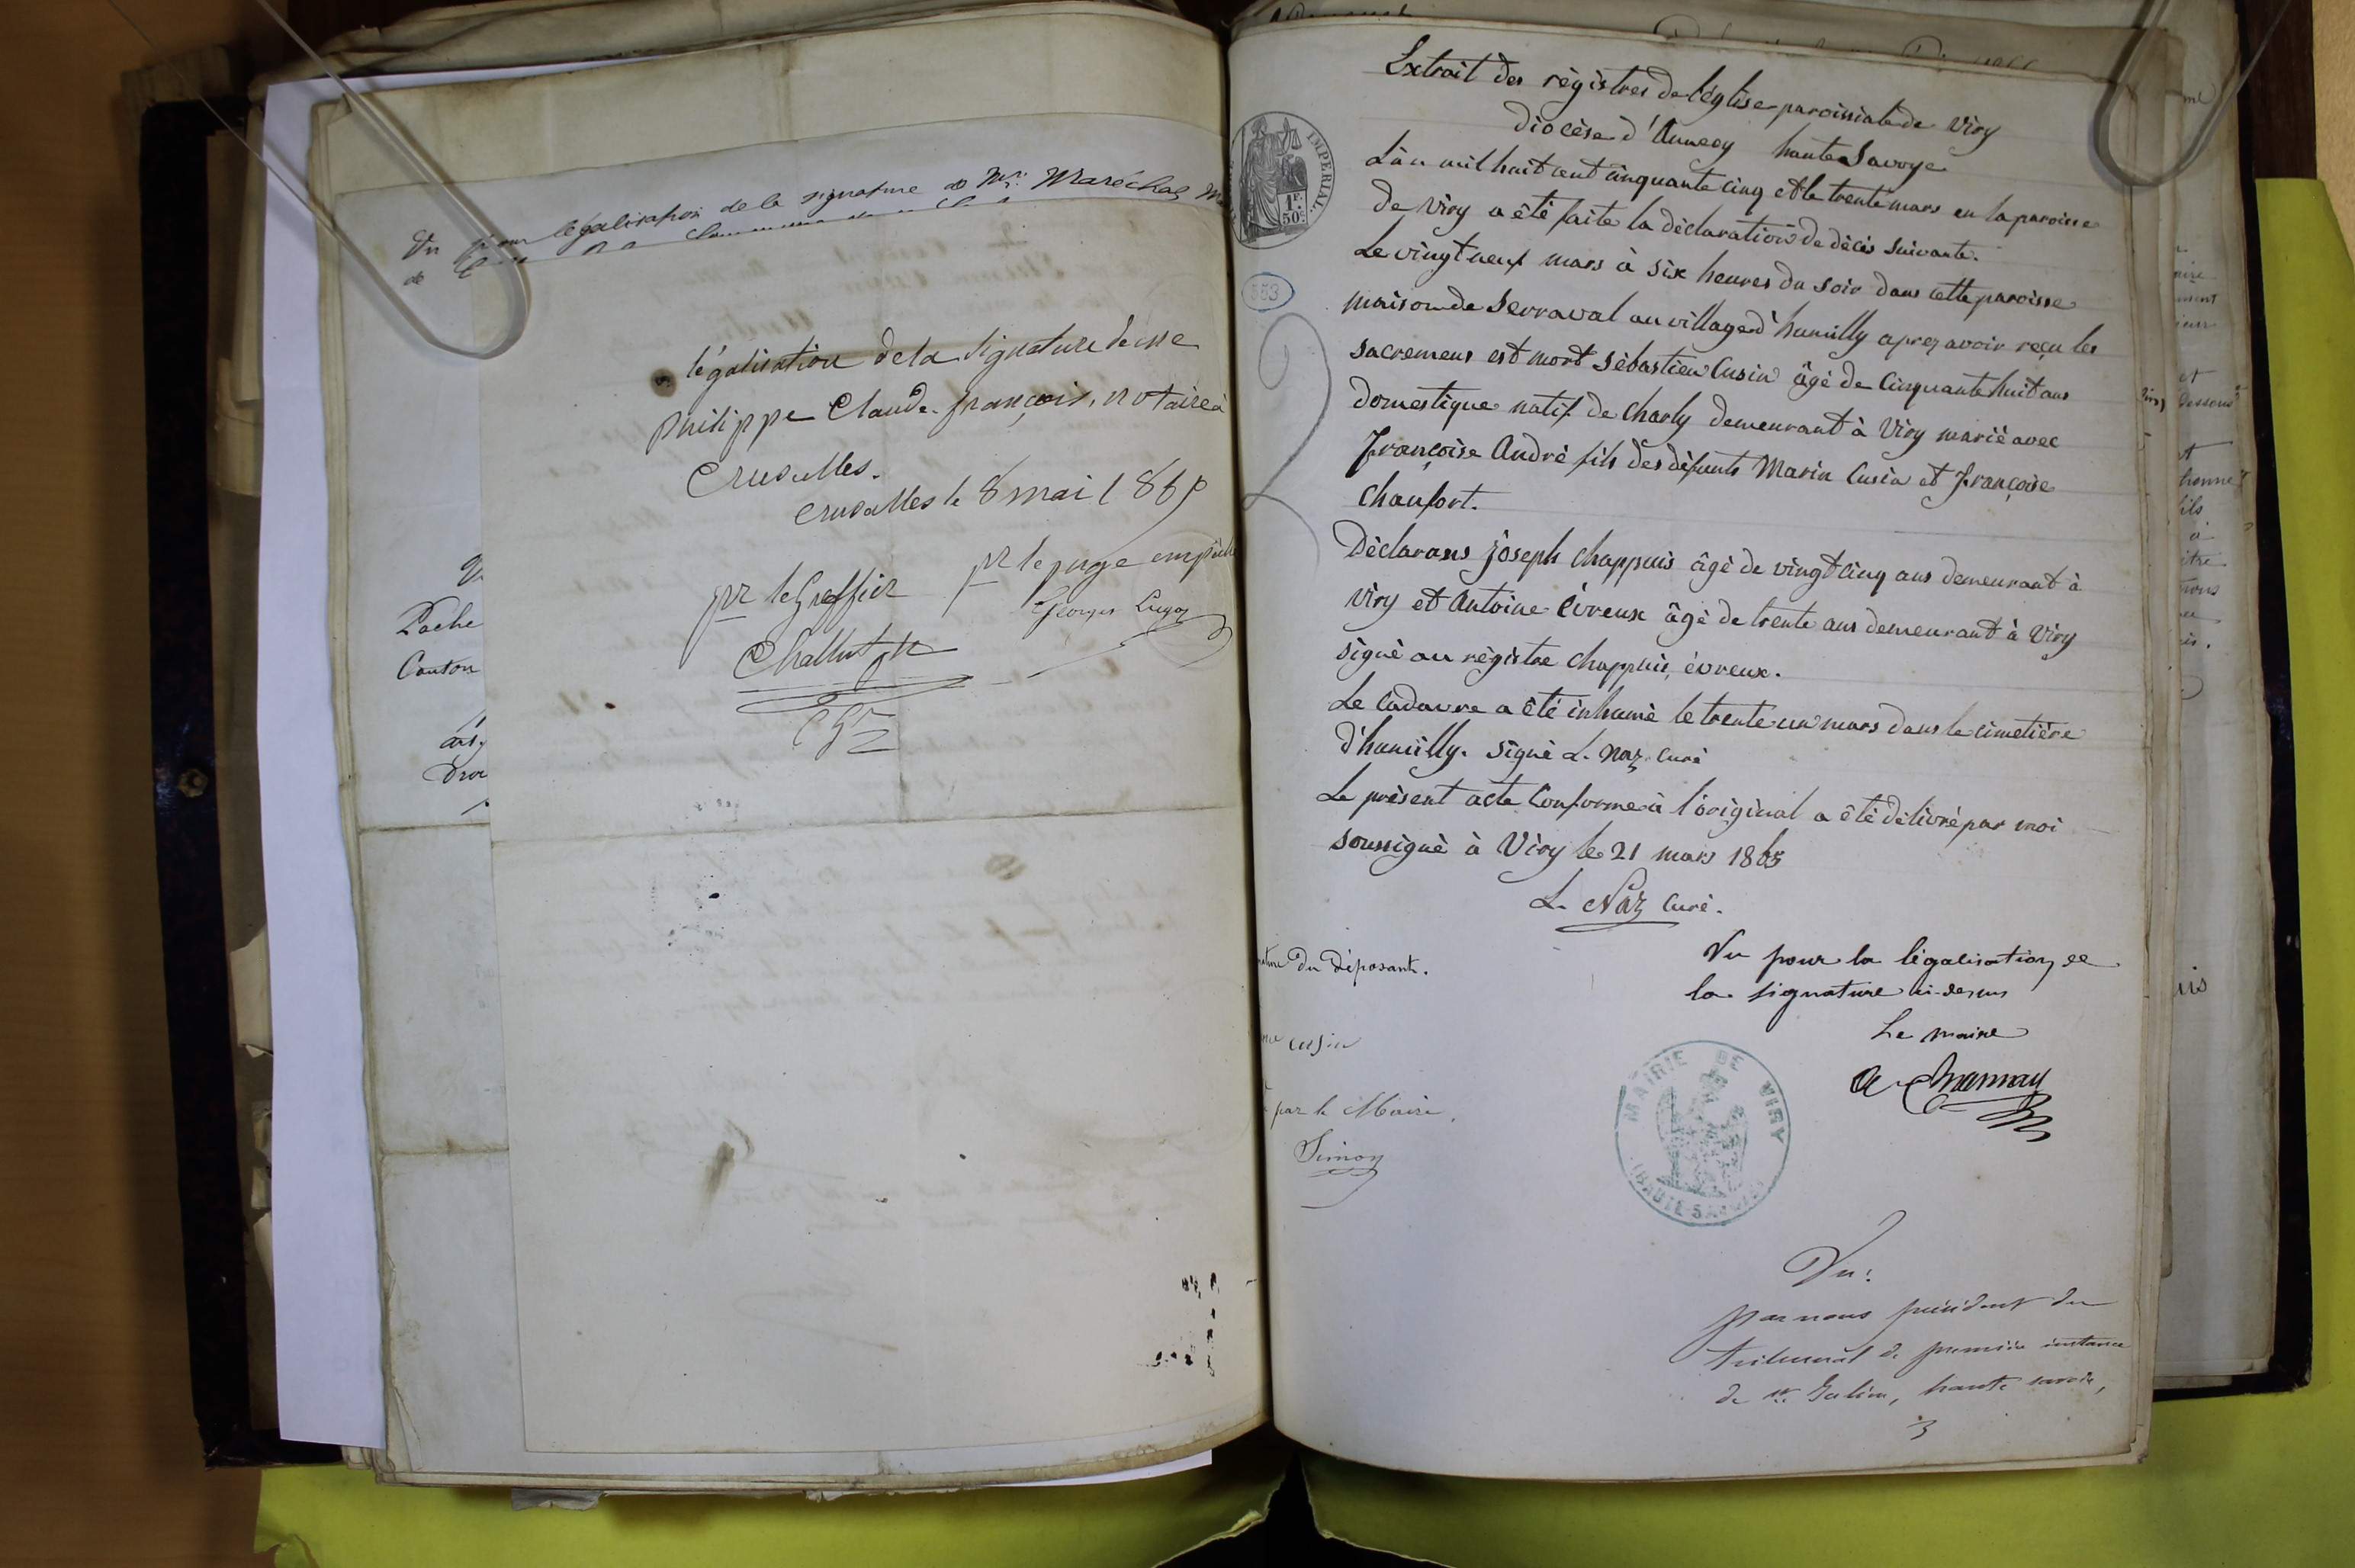 Vu pour légalisation de la signature de Mr. Maréchal
de
légalisation de la signature de me
philippe Claude-françois, notaire à
Cruseilles.
Cruseilles le 8 mai 1865
pr le Greffier
pr le juge empêché
Pache
Canton
Extrait des règistres de l'église paroissiale de Viry
diocèse d'Annecy haute Savoye
L'an mil huit cent cinquante cinq et le trente mars en la paroisse
de Viry a été faite la déclaration de décès suivante.
Le vingt neuf mars à six heures du soir dans cette paroisse
maison de Serraval au village d'humilly aprez avoir reçu les
sacremens est mort sébastien Cusin âgé de Cinquante huit ans
domestique natif de Charly demeurant à Viry marié avec
françoise André fils des défunts Marin Cusin et françoise
Chaufort.
Déclarans joseph Chappuis âgé de vingt cinq ans demeurant à
Viry et Antoine évreux âgé de trente ans demeurant à Viry
signé au règistre Chappuis, évreux.
Le Cadavre a été inhumé le trente un mars dans le cimetière
d'humilly. signé L. Naz Curé
Le présent acte Conforme à l'original a été délivré par moi
soussigné à Viry le 21 mars 1865
L. Naz Curé.
du déposant.
Vu pour la légalisation de
la signature ci-dessus
Le maire
cusin
par le Maire,
Simon
MAIRIE DE VIRY
(HAUTE-SAVOIE)
IMPERIAL
1F.
50c.
553
Vu:
par nous président du
tribunal de première instance
de St. Julien, haute savoie,